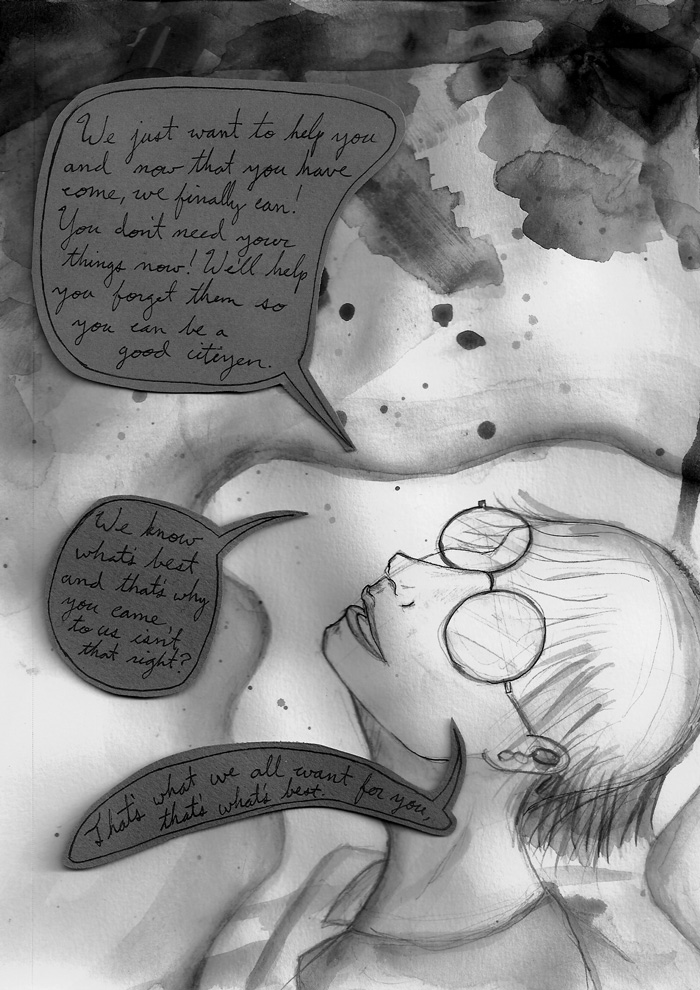 We just want to help you
and now that you have
come, we finally can!
You don't need your
things now! We'll help
you forget them so
you can be a
good citizen.
We know
what's best
and that's why
you came,
to us isn't
that right?
That's what we all want for you,
that's what's best.